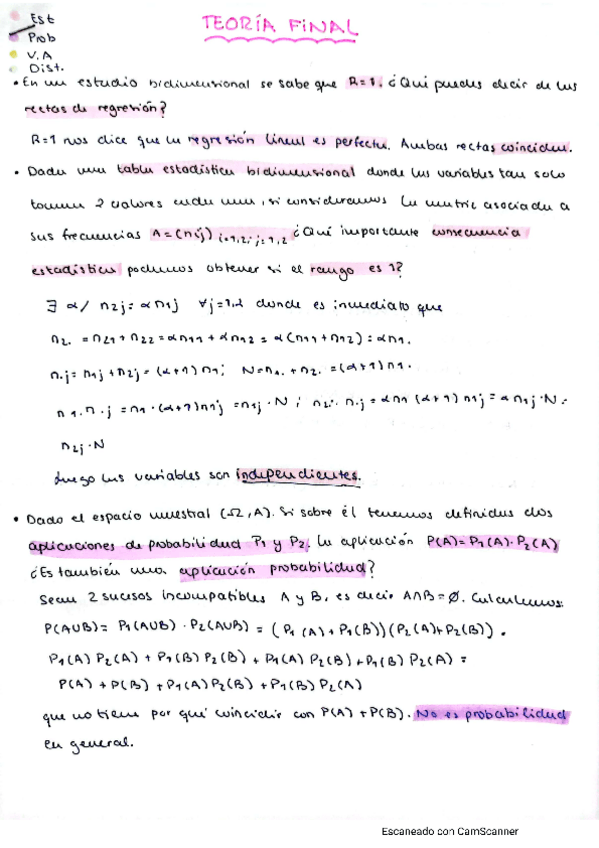 Est
Prob
V.A
Dist.
TEORÍA FINAL
• En un estudio bidimensional se sabe que R=1. ¿Qué puedes decir de las
rectas de regresión?
R=1 nos dice que la regresión lineal es perfecta. Ambas rectas coinciden.
• Dada una tabla estadística bidimensional donde las variables tan solo
toman 2 valores cada una, si consideramos la matriz asociada a
sus frecuencias A=(nij) i=1,2; j=1,2 ¿Qué importante consecuencia
estadística podemos obtener si el rango es 1?
∃ α / n2j = αn1j ∀j=1,2 donde es inmediato que
n2. = n21 + n22 = αn11 + αn12 = α(n11+n12) = αn1.
n.j = n1j + n2j = (α+1)n1j N=n1. + n2. = (α+1)n1.
n1. n.j = n1.(α+1)n1j = n1j · N ; n2. n.j = αn1 (α+1) n1j = αn1j · N =
n2j · N
Luego las variables son independientes.
• Dado el espacio muestral (Ω, A). Si sobre él tenemos definidas dos
aplicaciones de probabilidad P1 y P2. La aplicación P(A) = P1(A) · P2(A)
¿Es también una aplicación probabilidad?
Sean 2 sucesos incompatibles A y B, es decir A∩B = Ø. Calculemos:
P(A∪B) = P1(A∪B) · P2(A∪B) = (P1(A) + P1(B))(P2(A)+P2(B)) =
P1(A) P2(A) + P1(B) P2(B) + P1(A) P2(B) + P1(B) P2(A) =
P(A) + P(B) + P1(A) P2(B) + P1(B) P2(A)
que no tiene por qué coincidir con P(A) + P(B). No es probabilidad
en general.
Escaneado con CamScanner